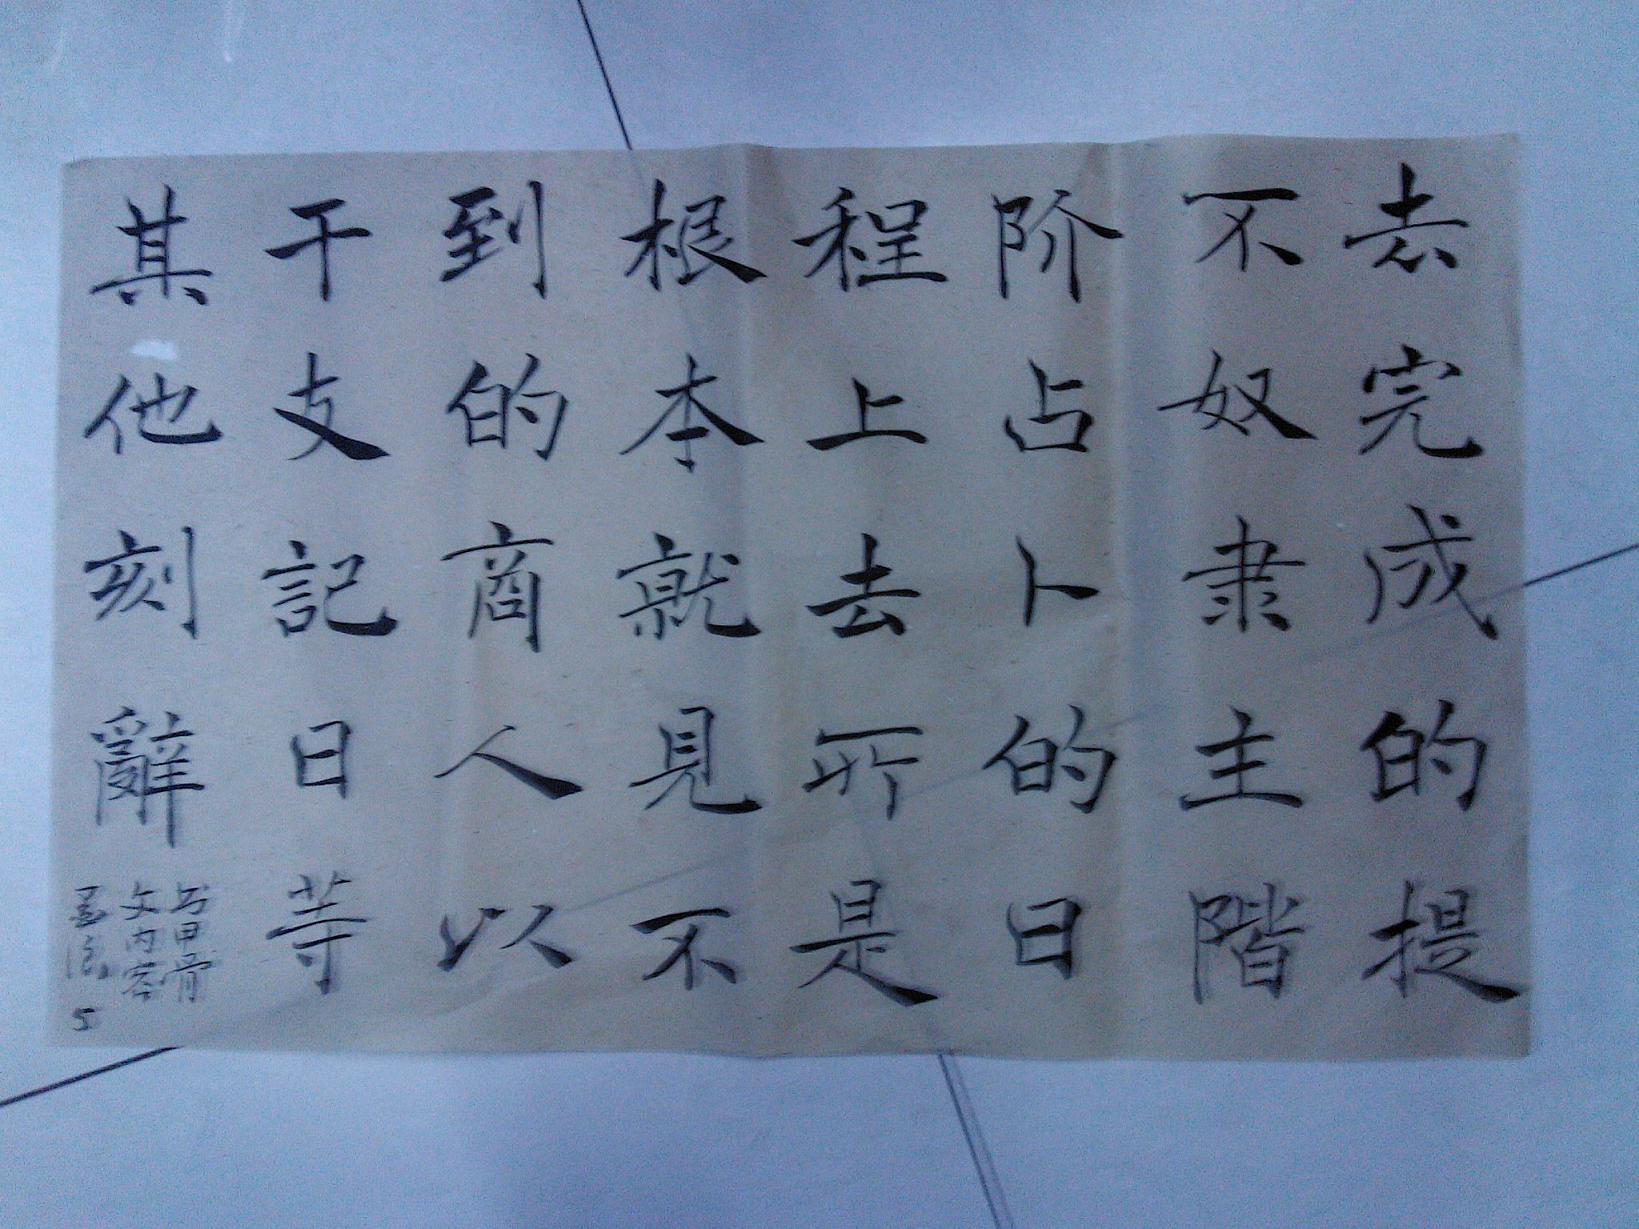 去完成的提
不奴隶主階
阶占卜的日
程上去所是
根本就見不
到的商人以
干支記日等
其他刻辭
与甲骨
文内容
5